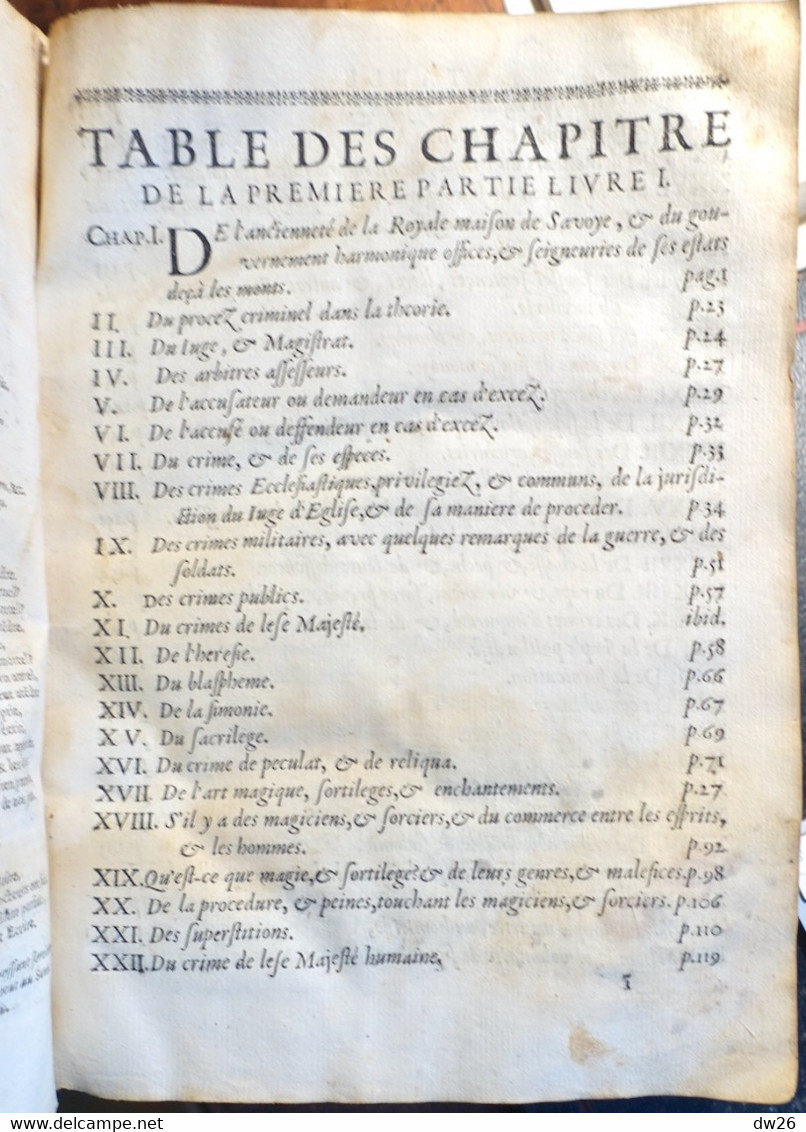 TABLE DES CHAPITRE
DE LA PREMIERE PARTIE LIVRE I.
CHAP.I. DE l'ancienneté de la Royale maison de Savoye, & du gou-
vernement harmonique offices,& seigneuries de ses estats
deçà les monts. pag.1
II. Du procez criminel dans la theorie. p.23
III. Du Iuge, & Magistrat. p.24
IV. Des arbitres assesseurs. p.27
V. De l'accusateur ou demandeur en cas d'excez. p.29
VI. De l'accusé ou deffendeur en cas d'excez. p.32
VII. Du crime, & de ses especes. p.33
VIII. Des crimes Ecclesiastiques,privilegiez, & communs, de la jurisdi-
ction du Iuge d'Eglise,& de sa maniere de proceder. p.34
IX. Des crimes militaires, avec quelques remarques de la guerre, & des
soldats. p.51
X. Des crimes publics. p.57
XI. Du crimes de lese Majesté, ibid.
XII. De l'heresie. p.58
XIII. Du blaspheme. p.66
XIV. De la simonie. p.67
XV. Du sacrilege. p.69
XVI. Du crime de peculat, & de reliqua. p.71
XVII. De l'art magique, sortileges,& enchantements. p.27
XVIII. S'il y a des magiciens,& sorciers,& du commerce entre les esprits,
& les hommes. p.92
XIX. Qu'est-ce que magie,& sortilege?& de leurs genres,& malefices.p.98
XX. De la procedure, & peines,touchant les magiciens,& sorciers. p.106
XXI. Des superstitions. p.110
XXII. Du crime de lese Majesté humaine, p.119
dw26